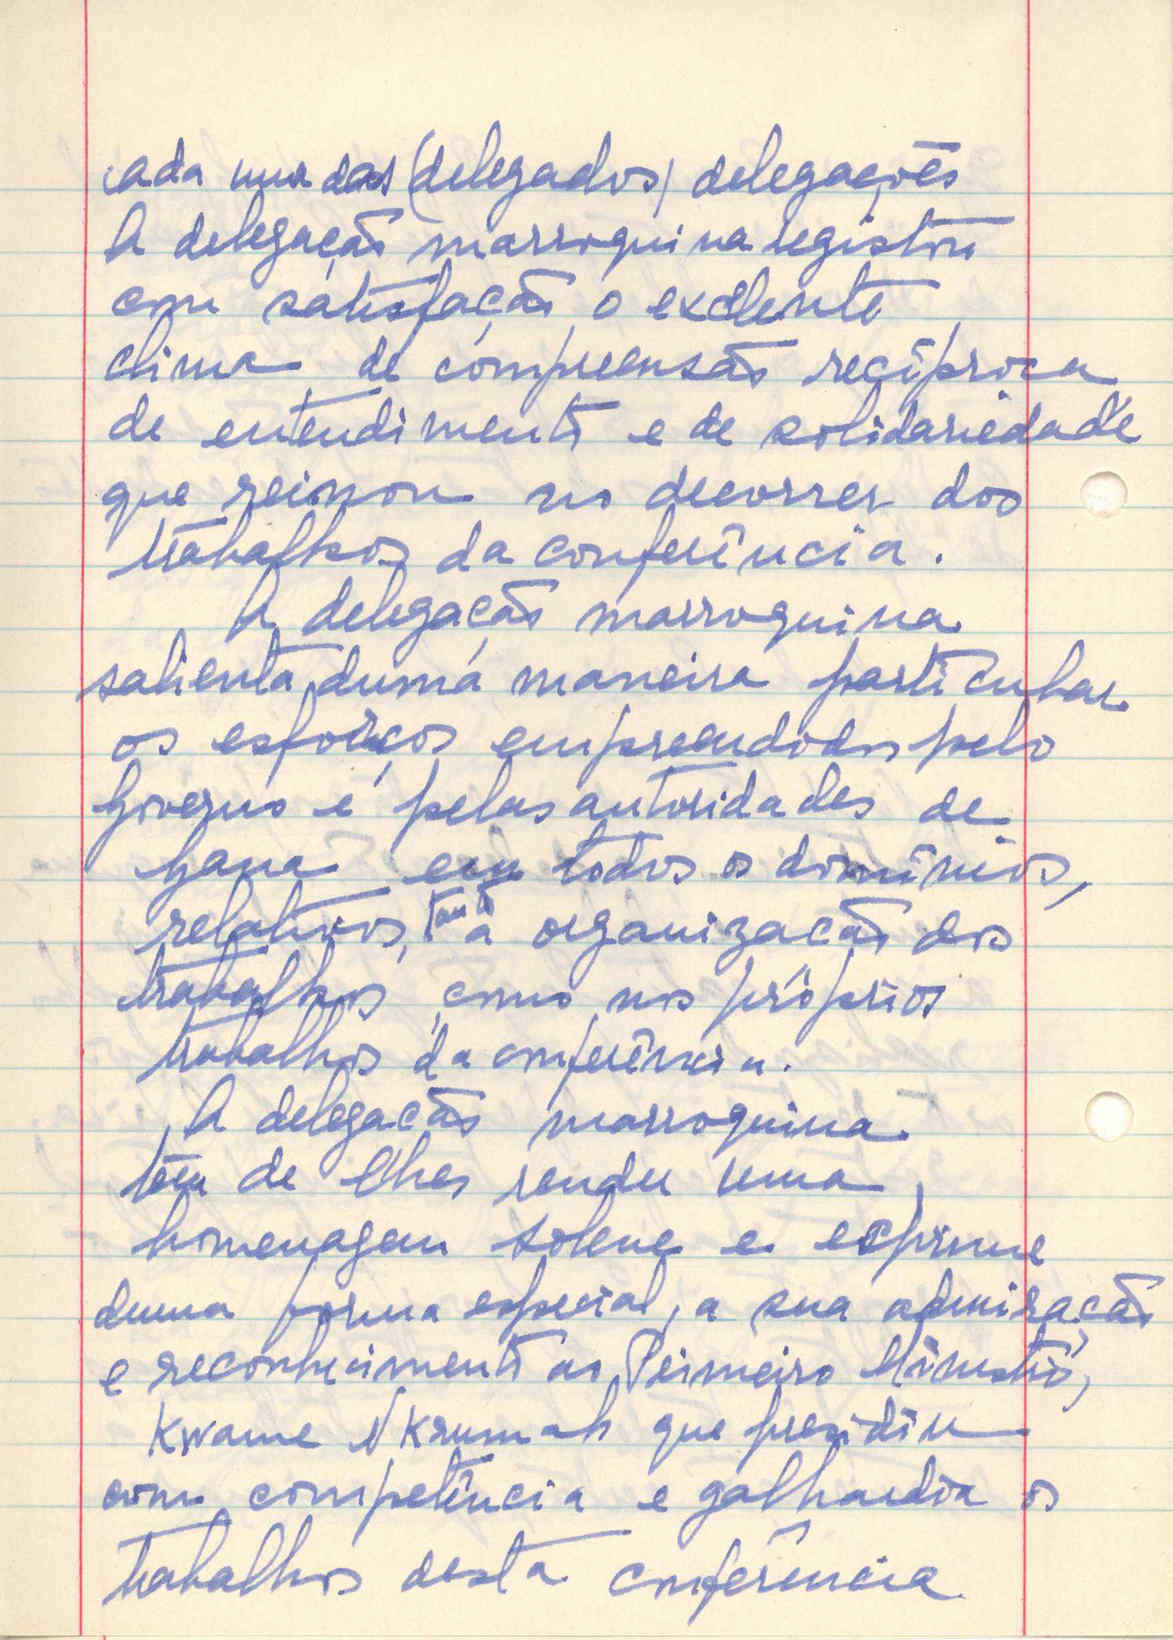 cada uma das (delegados) delegações
A delegação marroquina registou
com satisfação o excelente
clima de compreensão recíproca
de entendimento e de solidariedade
que reinou no decorrer dos
trabalhos da conferência.
A delegação marroquina
salienta, duma maneira particular
os esforços empreendidos pelo
Governo e pelas autoridades de
Gana em todos os domínios,
relativos, tanto à organização dos
trabalhos, como nos próprios
trabalhos da conferência.
A delegação marroquina
tem de lhes render uma
homenagem solene e exprime
duma forma especial, a sua admiração
e reconhecimento ao Primeiro Ministro,
Kwame NKrumah que presidiu
com competência e galhardia os
trabalhos desta conferência